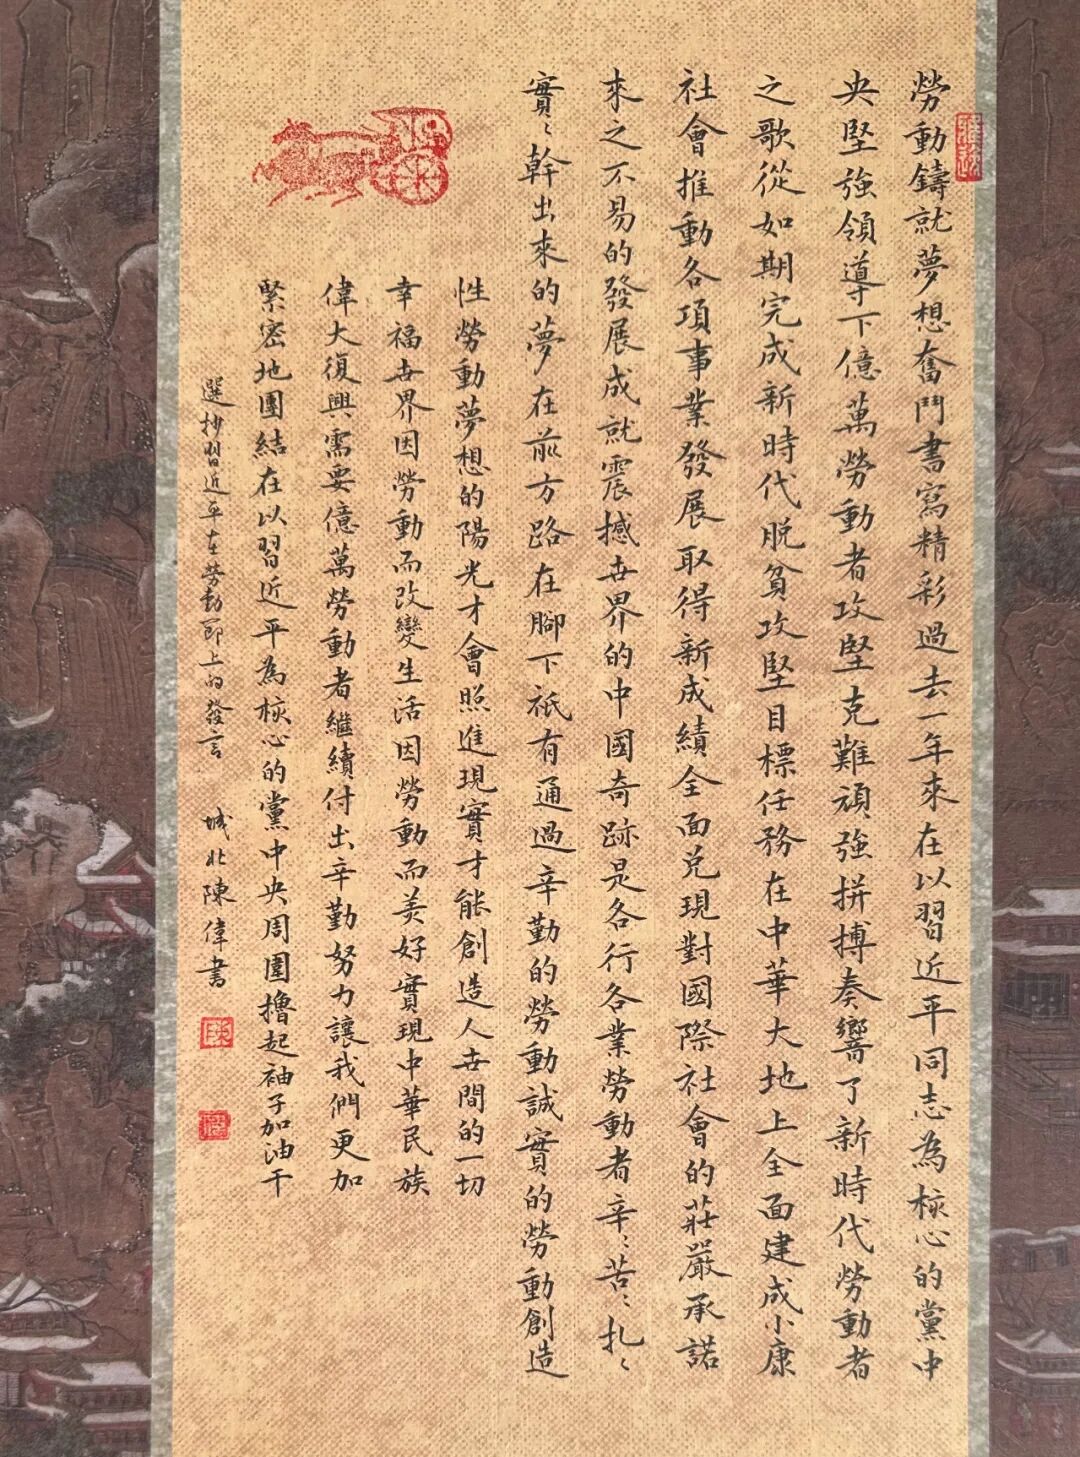 勞動鑄就夢想奮鬥書寫精彩過去一年來在以習近平同志為核心的黨中
央堅強領導下億萬勞動者攻堅克難頑強拼搏奏響了新時代勞動者
之歌從如期完成新時代脫貧攻堅目標任務在中華大地上全面建成小康
社會推動各項事業發展取得新成績全面兌現對國際社會的莊嚴承諾
來之不易的發展成就震撼世界的中國奇跡是各行各業勞動者辛〻苦〻扎〻
實〻幹出來的夢在前方路在腳下祇有通過辛勤的勞動誠實的勞動創造
性勞動夢想的陽光才會照進現實才能創造人世間的一切
幸福世界因勞動而改變生活因勞動而美好實現中華民族
偉大復興需要億萬勞動者繼續付出辛勤努力讓我們更加
緊密地團結在以習近平為核心的黨中央周圍擼起袖子加油干
選抄習近平在勞動節上的發言 城北陳偉書
陳